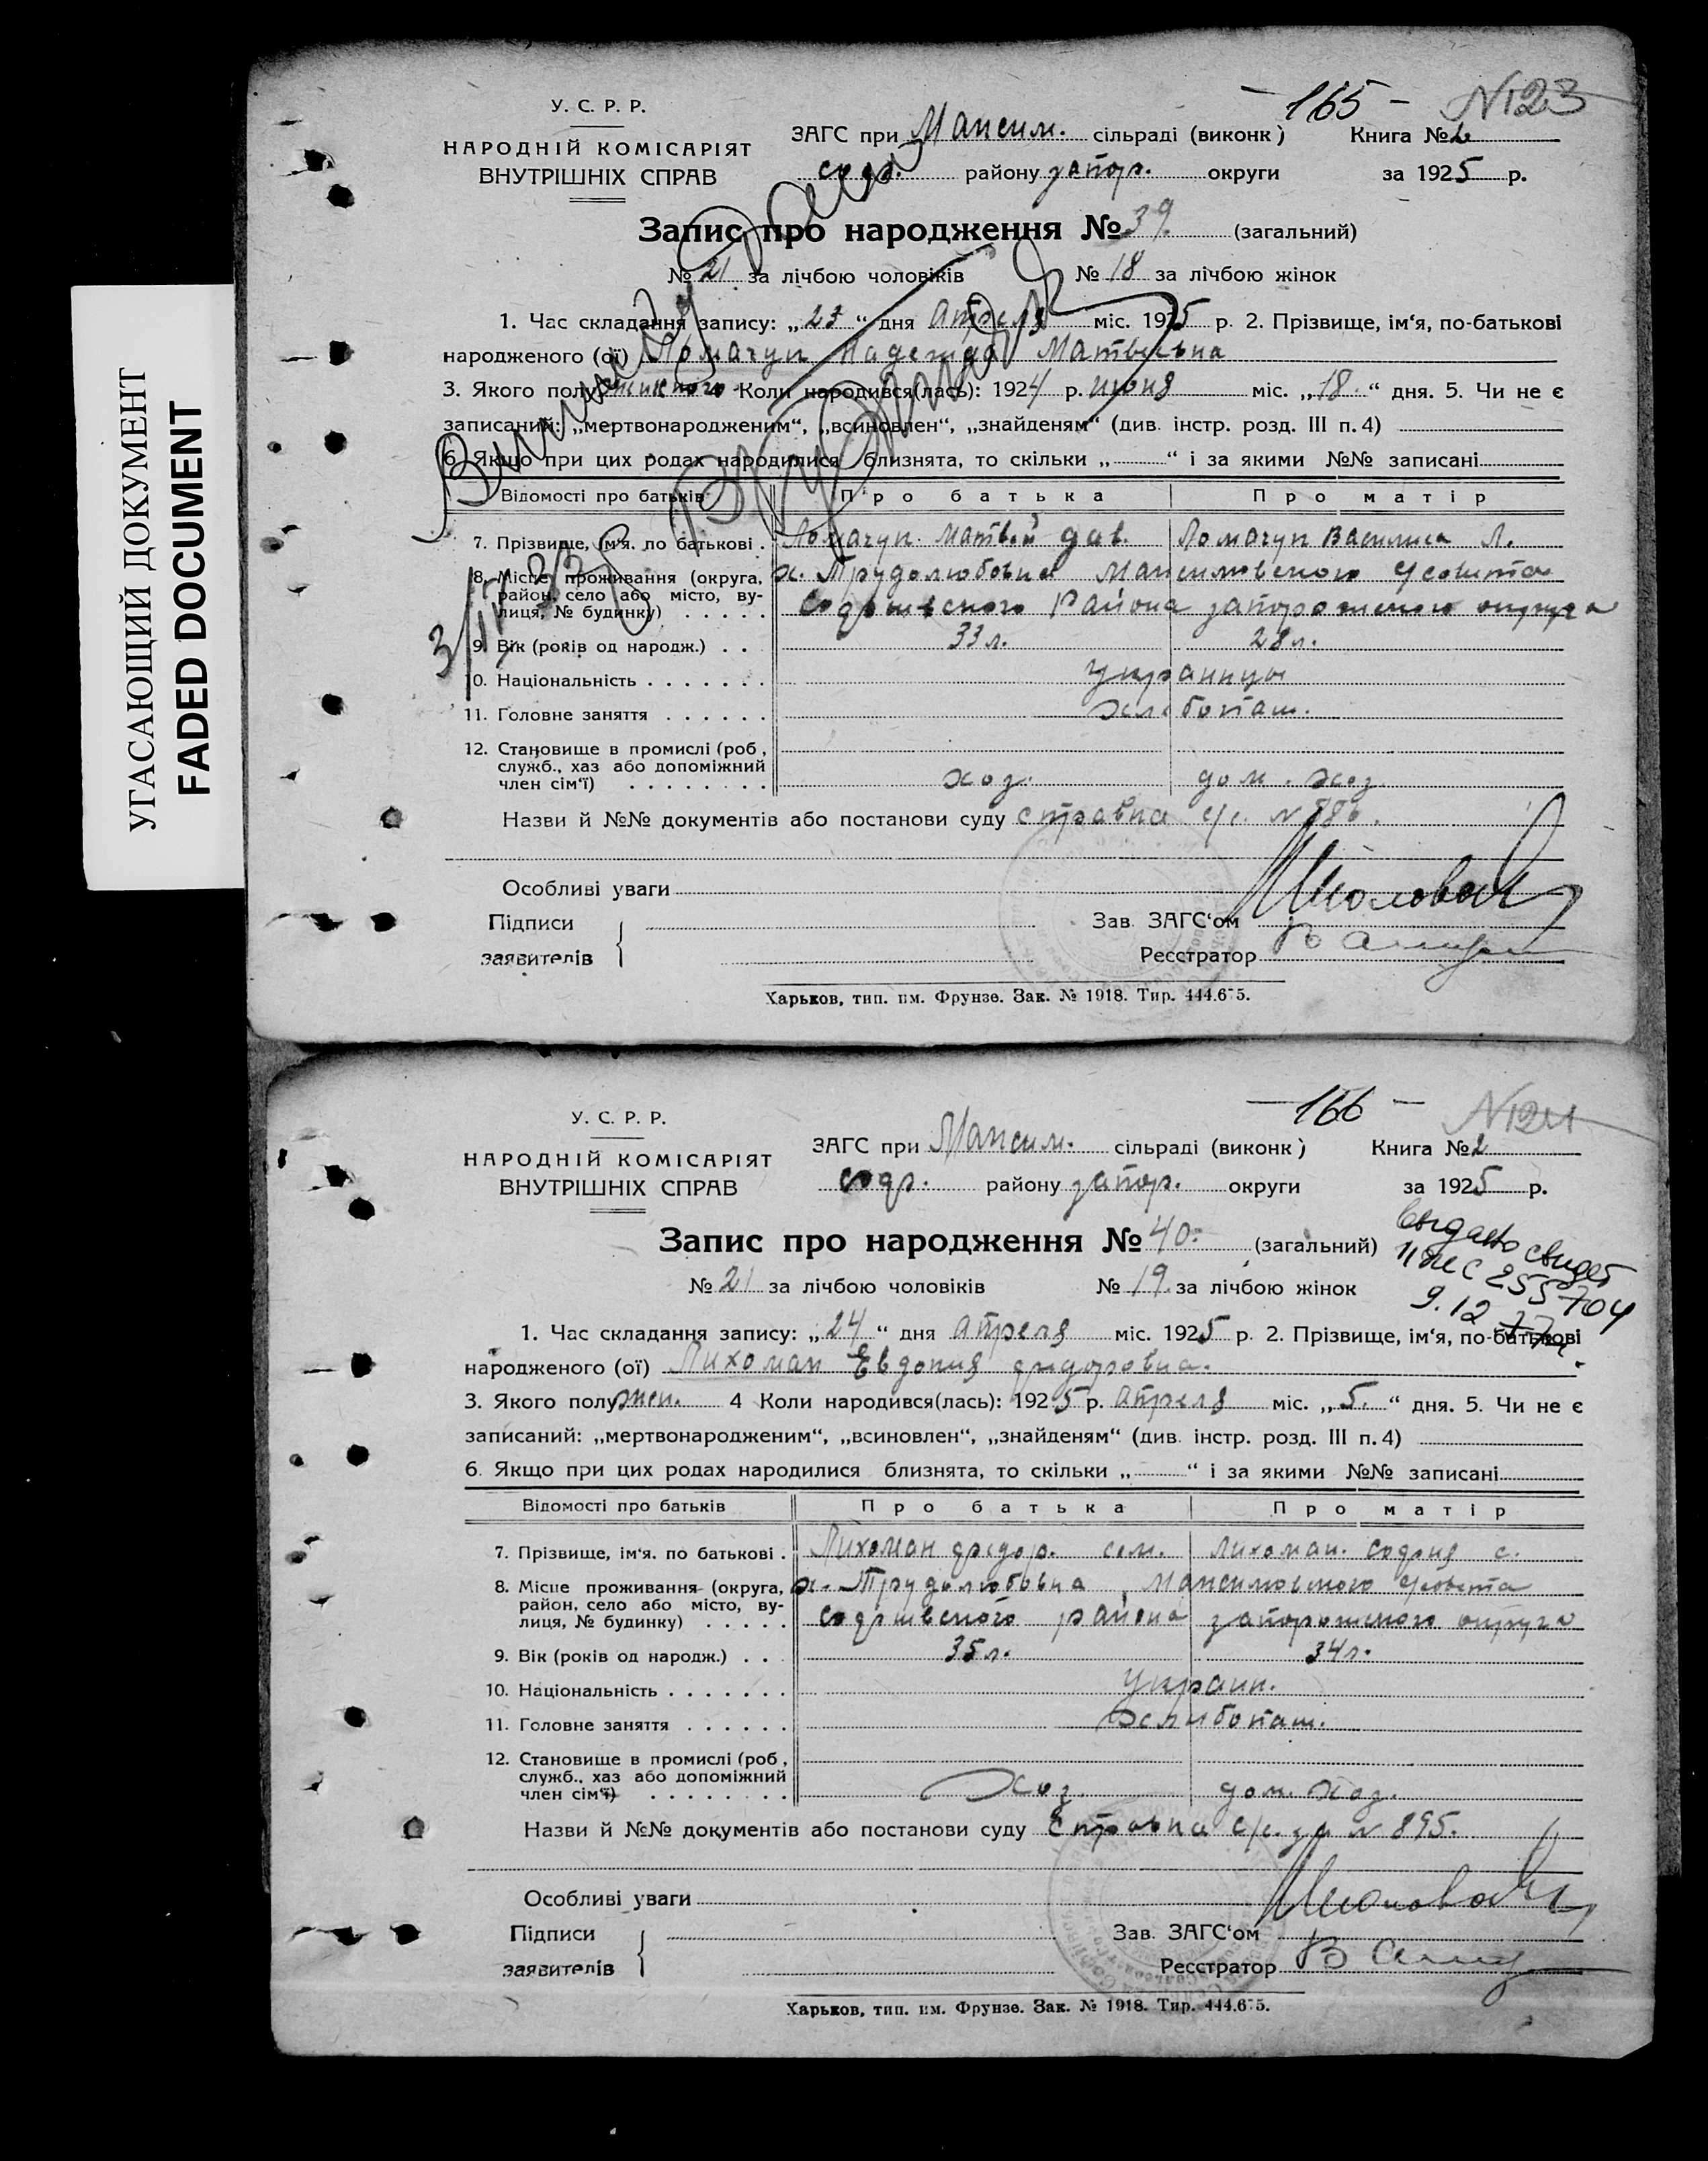 УГАСАЮЩИЙ ДОКУМЕНТ
FADED DOCUMENT
- 165 - N123
У. С. Р. Р.
НАРОДНІЙ КОМІСАРІЯТ
ВНУТРІШНІХ СПРАВ
ЗАГС при Максим. сільраді (виконк) Книга № 2
соф. району запор. округи за 1925 р.
Запис про народження № 39. (загальний)
№ 21 за лічбою чоловіків № 18 за лічбою жінок
1. Час складання запису: „23“ дня Апреля міс. 1925 р. 2. Прізвище, ім‘я, по-батькові
народженого (ої) Ломачук Надежда Матвеевна
3. Якого полу женского 4 Коли народився(лась): 1924 р. июня міс. „18.“ дня. 5. Чи не є
записаний: „мертвонародженим“, „всиновлен“, „знайденям“ (див. інстр. розд. III п. 4)
6. Якщо при цих родах народилися близнята, то скільки „ “ і за якими №№ записані
Відомості про батьків Про батька Про матір
7. Прізвище, ім‘я. по батькові . Ломачук Матвей дав. Ломачук Василиса Л.
8. Місце проживання (округа, район, село або місто, вулиця, № будинку) х. Трудолюбовка Максимовского Усовета
Софиевского Района запорожского округа
9. Вік (років од народж.) 33 л. 28 л.
10. Національність украинцы
11. Головне заняття хлебопаш.
12. Становище в промислі (роб, служб., хаз або допоміжний член сім‘ї) хоз. дом. хоз.
Назви й №№ документів або постанови суду справка с/с. N 886.
Особливі уваги
Підписи
заявителів
Зав. ЗАГС‘ом
Реєстратор
Харьков, тип. им. Фрунзе. Зак. № 1918. Тир. 444.675.
- 166 - N124
У. С. Р. Р.
НАРОДНІЙ КОМІСАРІЯТ
ВНУТРІШНІХ СПРАВ
ЗАГС при Максим. сільраді (виконк) Книга № 2
соф. району запор. округи за 1925 р.
Запис про народження № 40. (загальний)
выдано свидет
II ЖС 255704
9.12.77г.
№ 21 за лічбою чоловіків № 19. за лічбою жінок
1. Час складання запису: „24“ дня Апреля міс. 1925 р. 2. Прізвище, ім‘я, по-батькові
народженого (ої) Лихоман Евдокия Федоровна.
3. Якого полу жен. 4 Коли народився(лась): 1925 р. Апреля міс. „5.“ дня. 5. Чи не є
записаний: „мертвонародженим“, „всиновлен“, „знайденям“ (див. інстр. розд. III п. 4)
6. Якщо при цих родах народилися близнята, то скільки „ “ і за якими №№ записані
Відомості про батьків Про батька Про матір
7. Прізвище, ім‘я. по батькові . Лихоман Федор. сем. Лихоман. София с.
8. Місце проживання (округа, район, село або місто, вулиця, № будинку) х. Трудолюбовка Максимовского Усовета
Софиевского района запорожского округа
9. Вік (років од народж.) 35 л. 34 л.
10. Національність Украин.
11. Головне заняття хлебопаш.
12. Становище в промислі (роб, служб., хаз або допоміжний член сім‘ї) Хоз. дом. хоз.
Назви й №№ документів або постанови суду Справка с/с. за N 895.
Особливі уваги
Підписи
заявителів
Зав. ЗАГС‘ом
Реєстратор
Харьков, тип. им. Фрунзе. Зак. № 1918. Тир. 444.675.